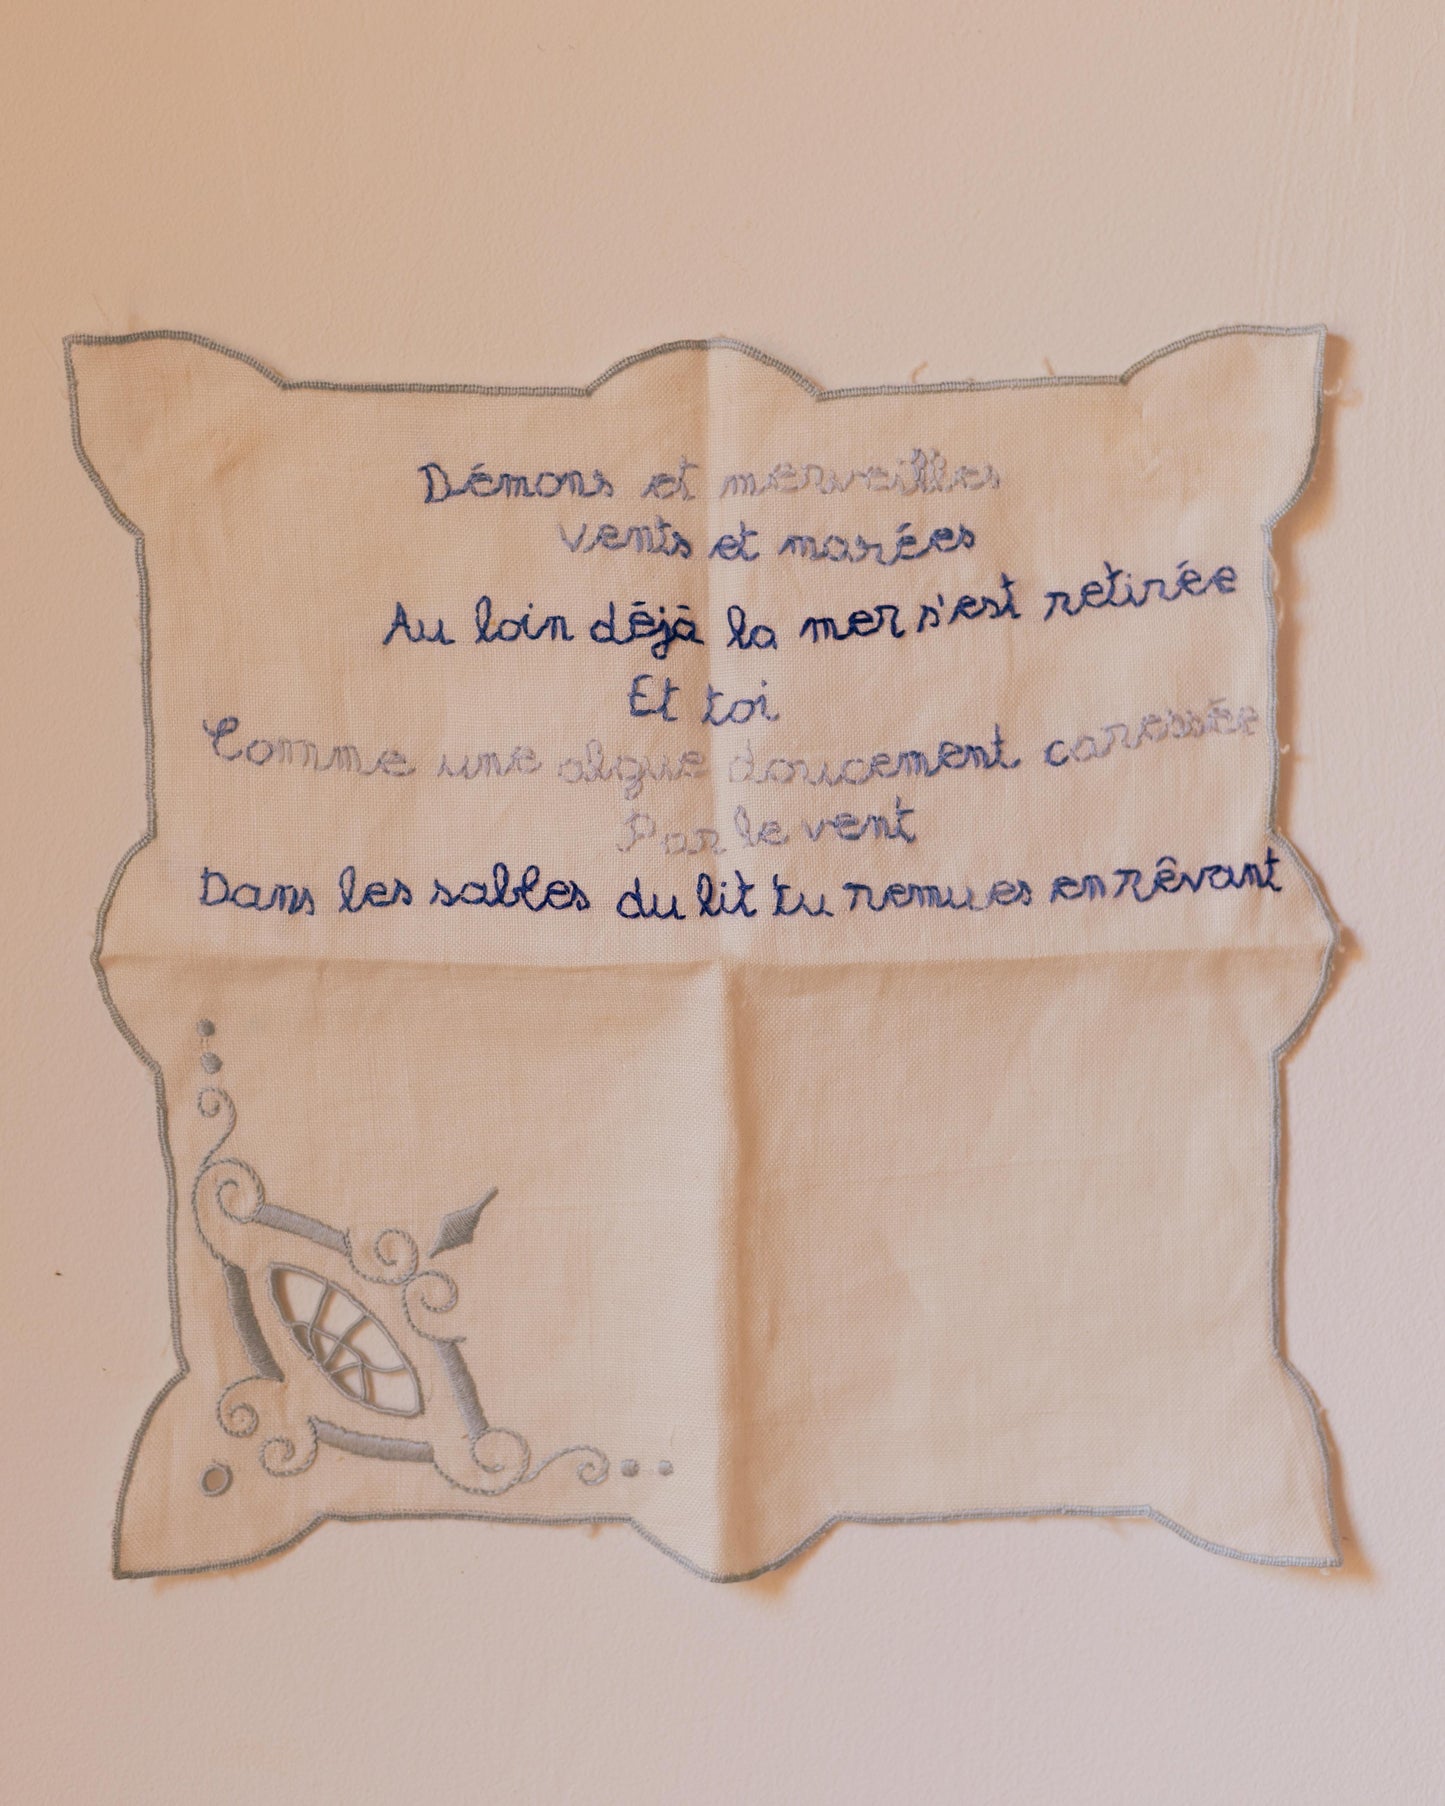 Démons et merveilles
vents et marées
Au loin déjà la mer s'est retirée
Et toi
Comme une algue doucement caressée
Par le vent
Dans les sables du lit tu remues en rêvant